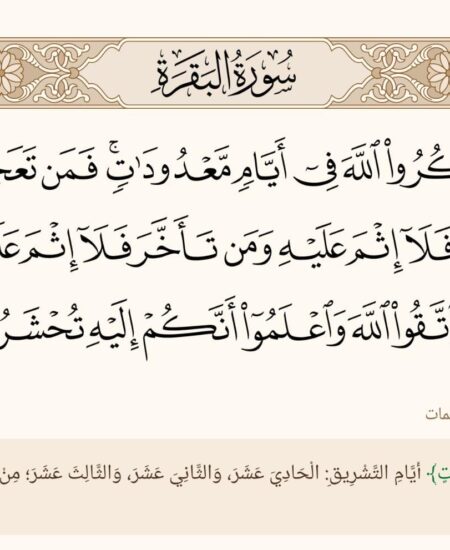 سُورَةُ البَقَرَةِ
كُرُوا۟ ٱللَّهَ فِىٓ أَيَّامٍ مَّعْدُودَٰتٍ ۚ فَمَن تَعَجَّ
فَلَآ إِثْمَ عَلَيْهِ وَمَن تَأَخَّرَ فَلَآ إِثْمَ عَلَ
تَّقُوا۟ ٱللَّهَ وَٱعْلَمُوٓا۟ أَنَّكُمْ إِلَيْهِ تُحْشَرُ
مات
تٍ﴾ أيَّامِ التَّشْرِيقِ: الْحَادِيَ عَشَرَ، وَالثَّانِيَ عَشَرَ، وَالثَّالِثَ عَشَرَ؛ مِنْ